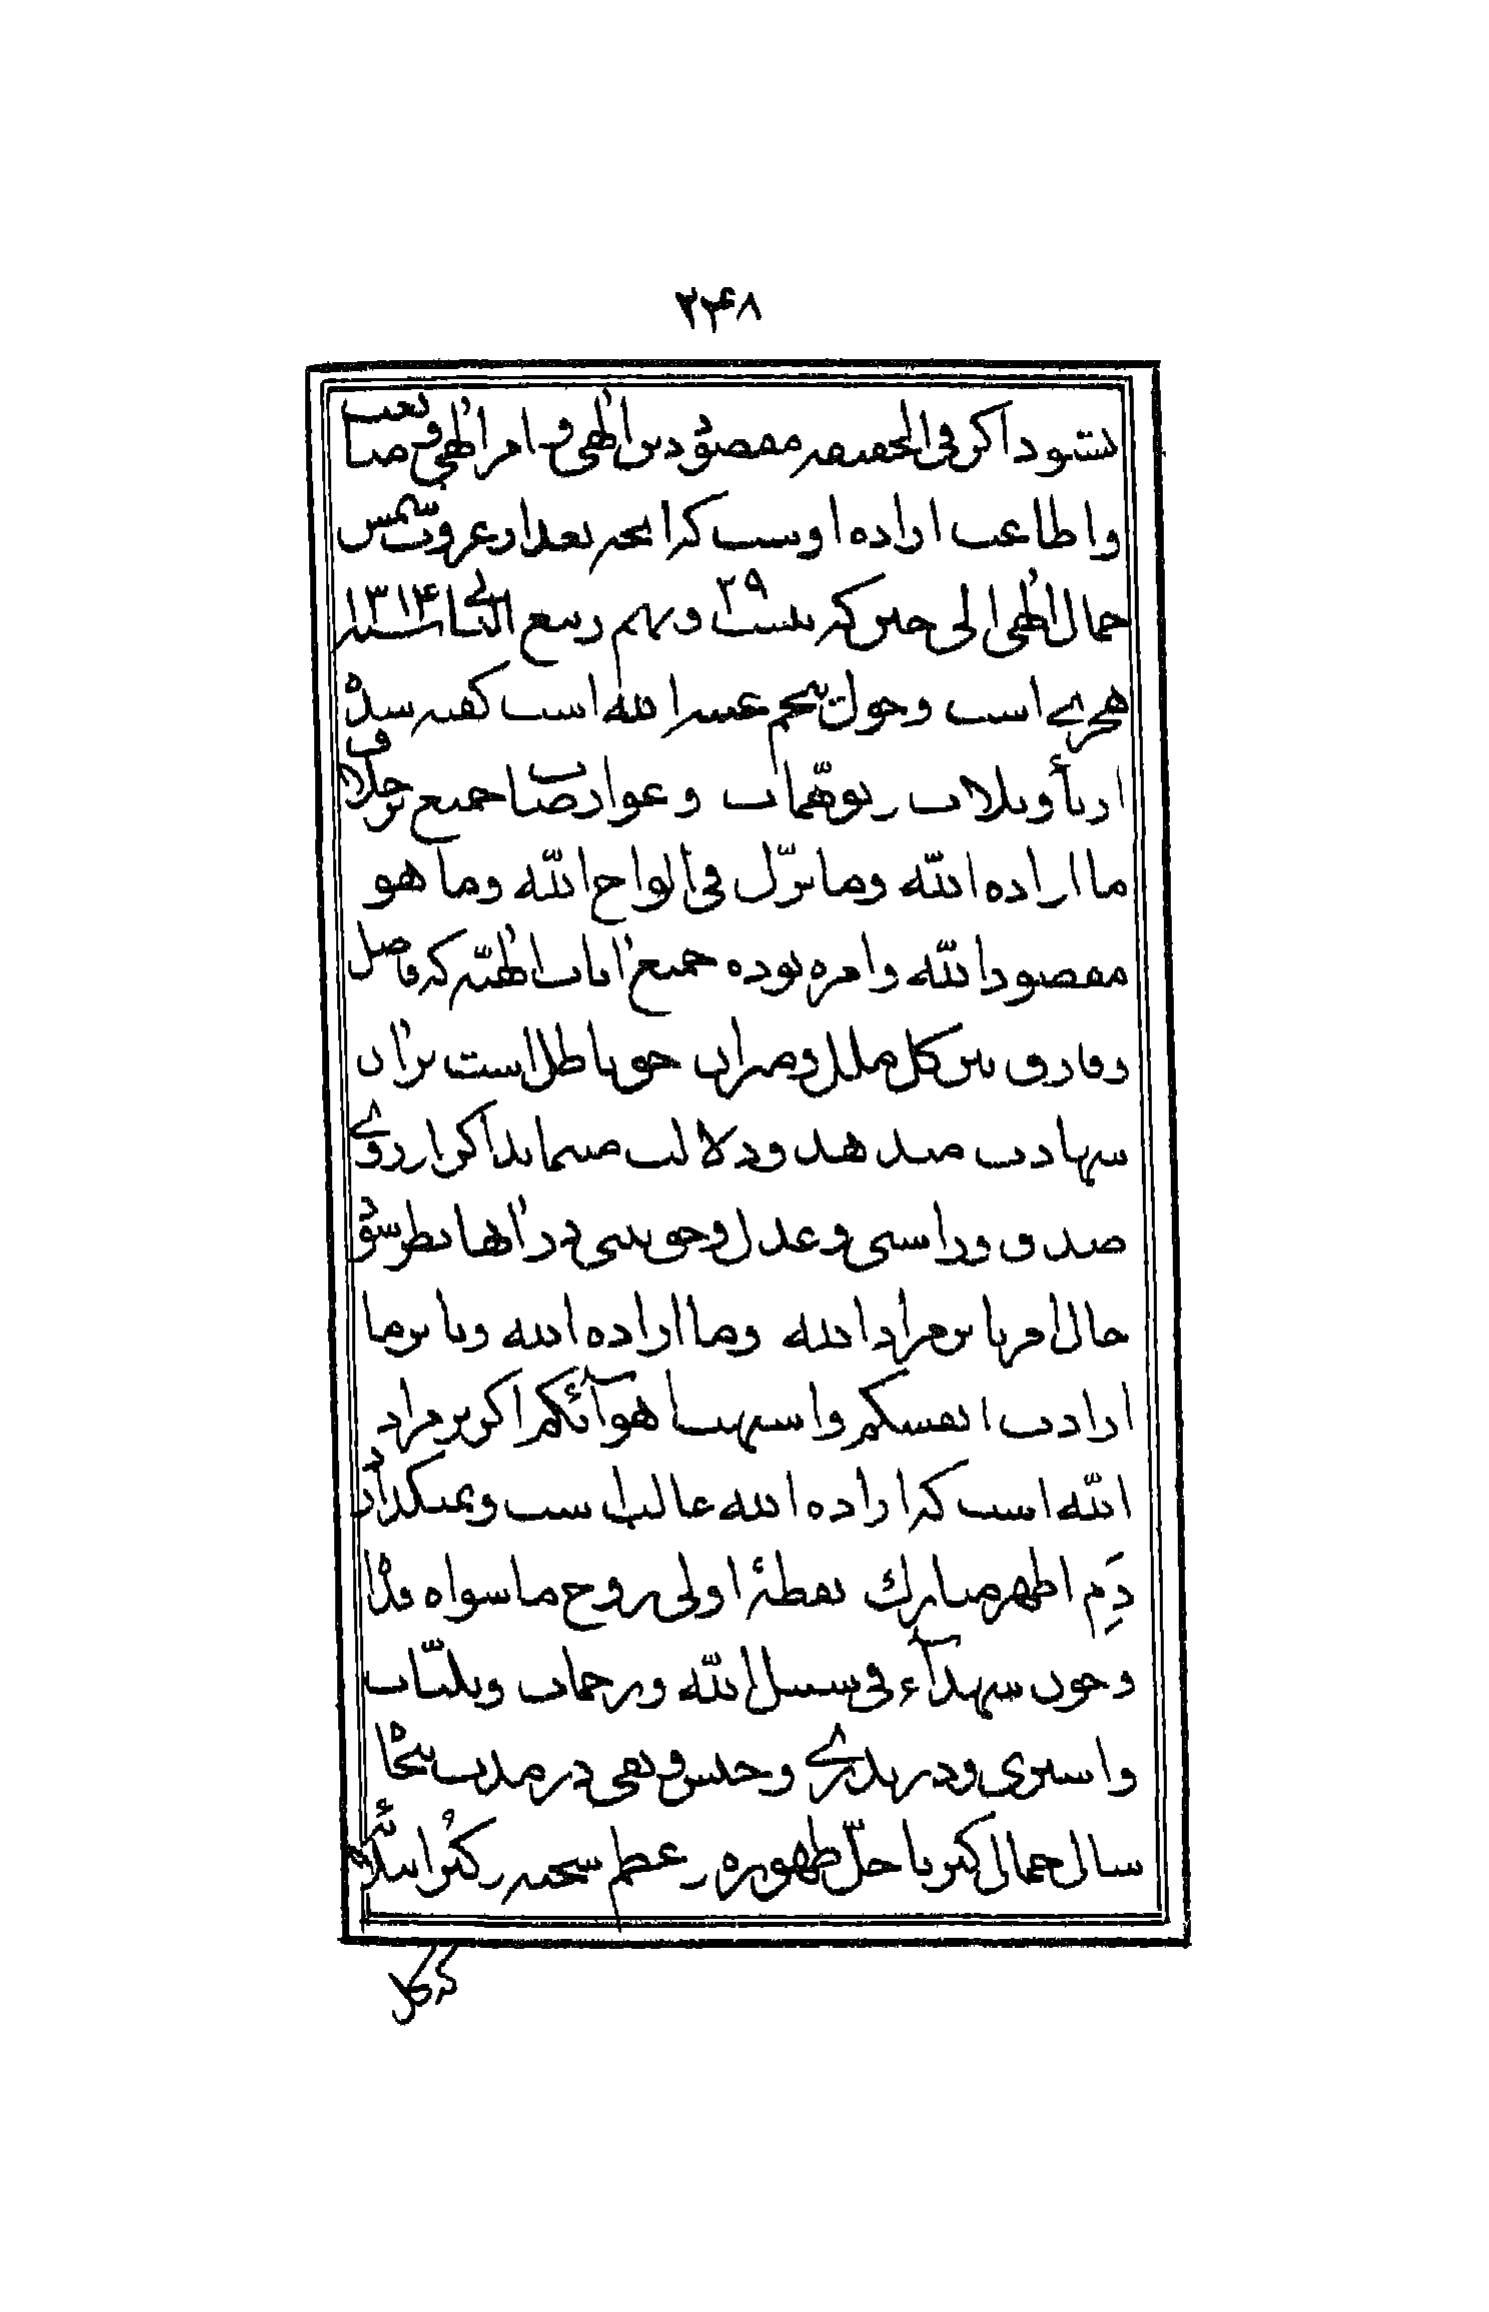 ۲۴۸
نشود اگر فی الحقیقه مقصود دین الٰهی و امر الٰهی و متابعت
و اطاعت اراده اوست که آنچه بعد از غروب شمس
جمال الٰهی الی حین که بیست ۲۹ و نهم ربیع الثانی سنه ۱۳۱۴
هجری است و حول پنجم عشر الله است گفته شده
از تأویلات و توهّمات و عوارضات جمیع بر خلاف
ما اراده الله و ما نزّل فی الواح الله و ما هو
مقصود الله و امره بوده جمیع آیات الٰهیّه که فاصل
و فارق بین کل ملل و میزان حق و باطل است بر آن
شهادت میدهد و دلالت مینماید اگر از روی
صدق و راستی و عدل و حق بینی در آنها نظر شود
حال امر یا بر مراد الله و ما اراده الله و یا بر ما
ارادت انفسکم و اشتهت اهوآئکم اگر بر مراد
الله است که اراده الله غالب است و نمیگذارد
دَمِ اطهر مبارک نقطهٔ اولی روح ما سواه فداه
و خون شهدآء فی سبیل الله و زحمات و بلیّات
و اسیری و دربدری و حبس و نفی در مدت پنجاه
سال جمال کبریا جلّ ظهوره و عظم سجنه و کبُر ابتلائه
که کل